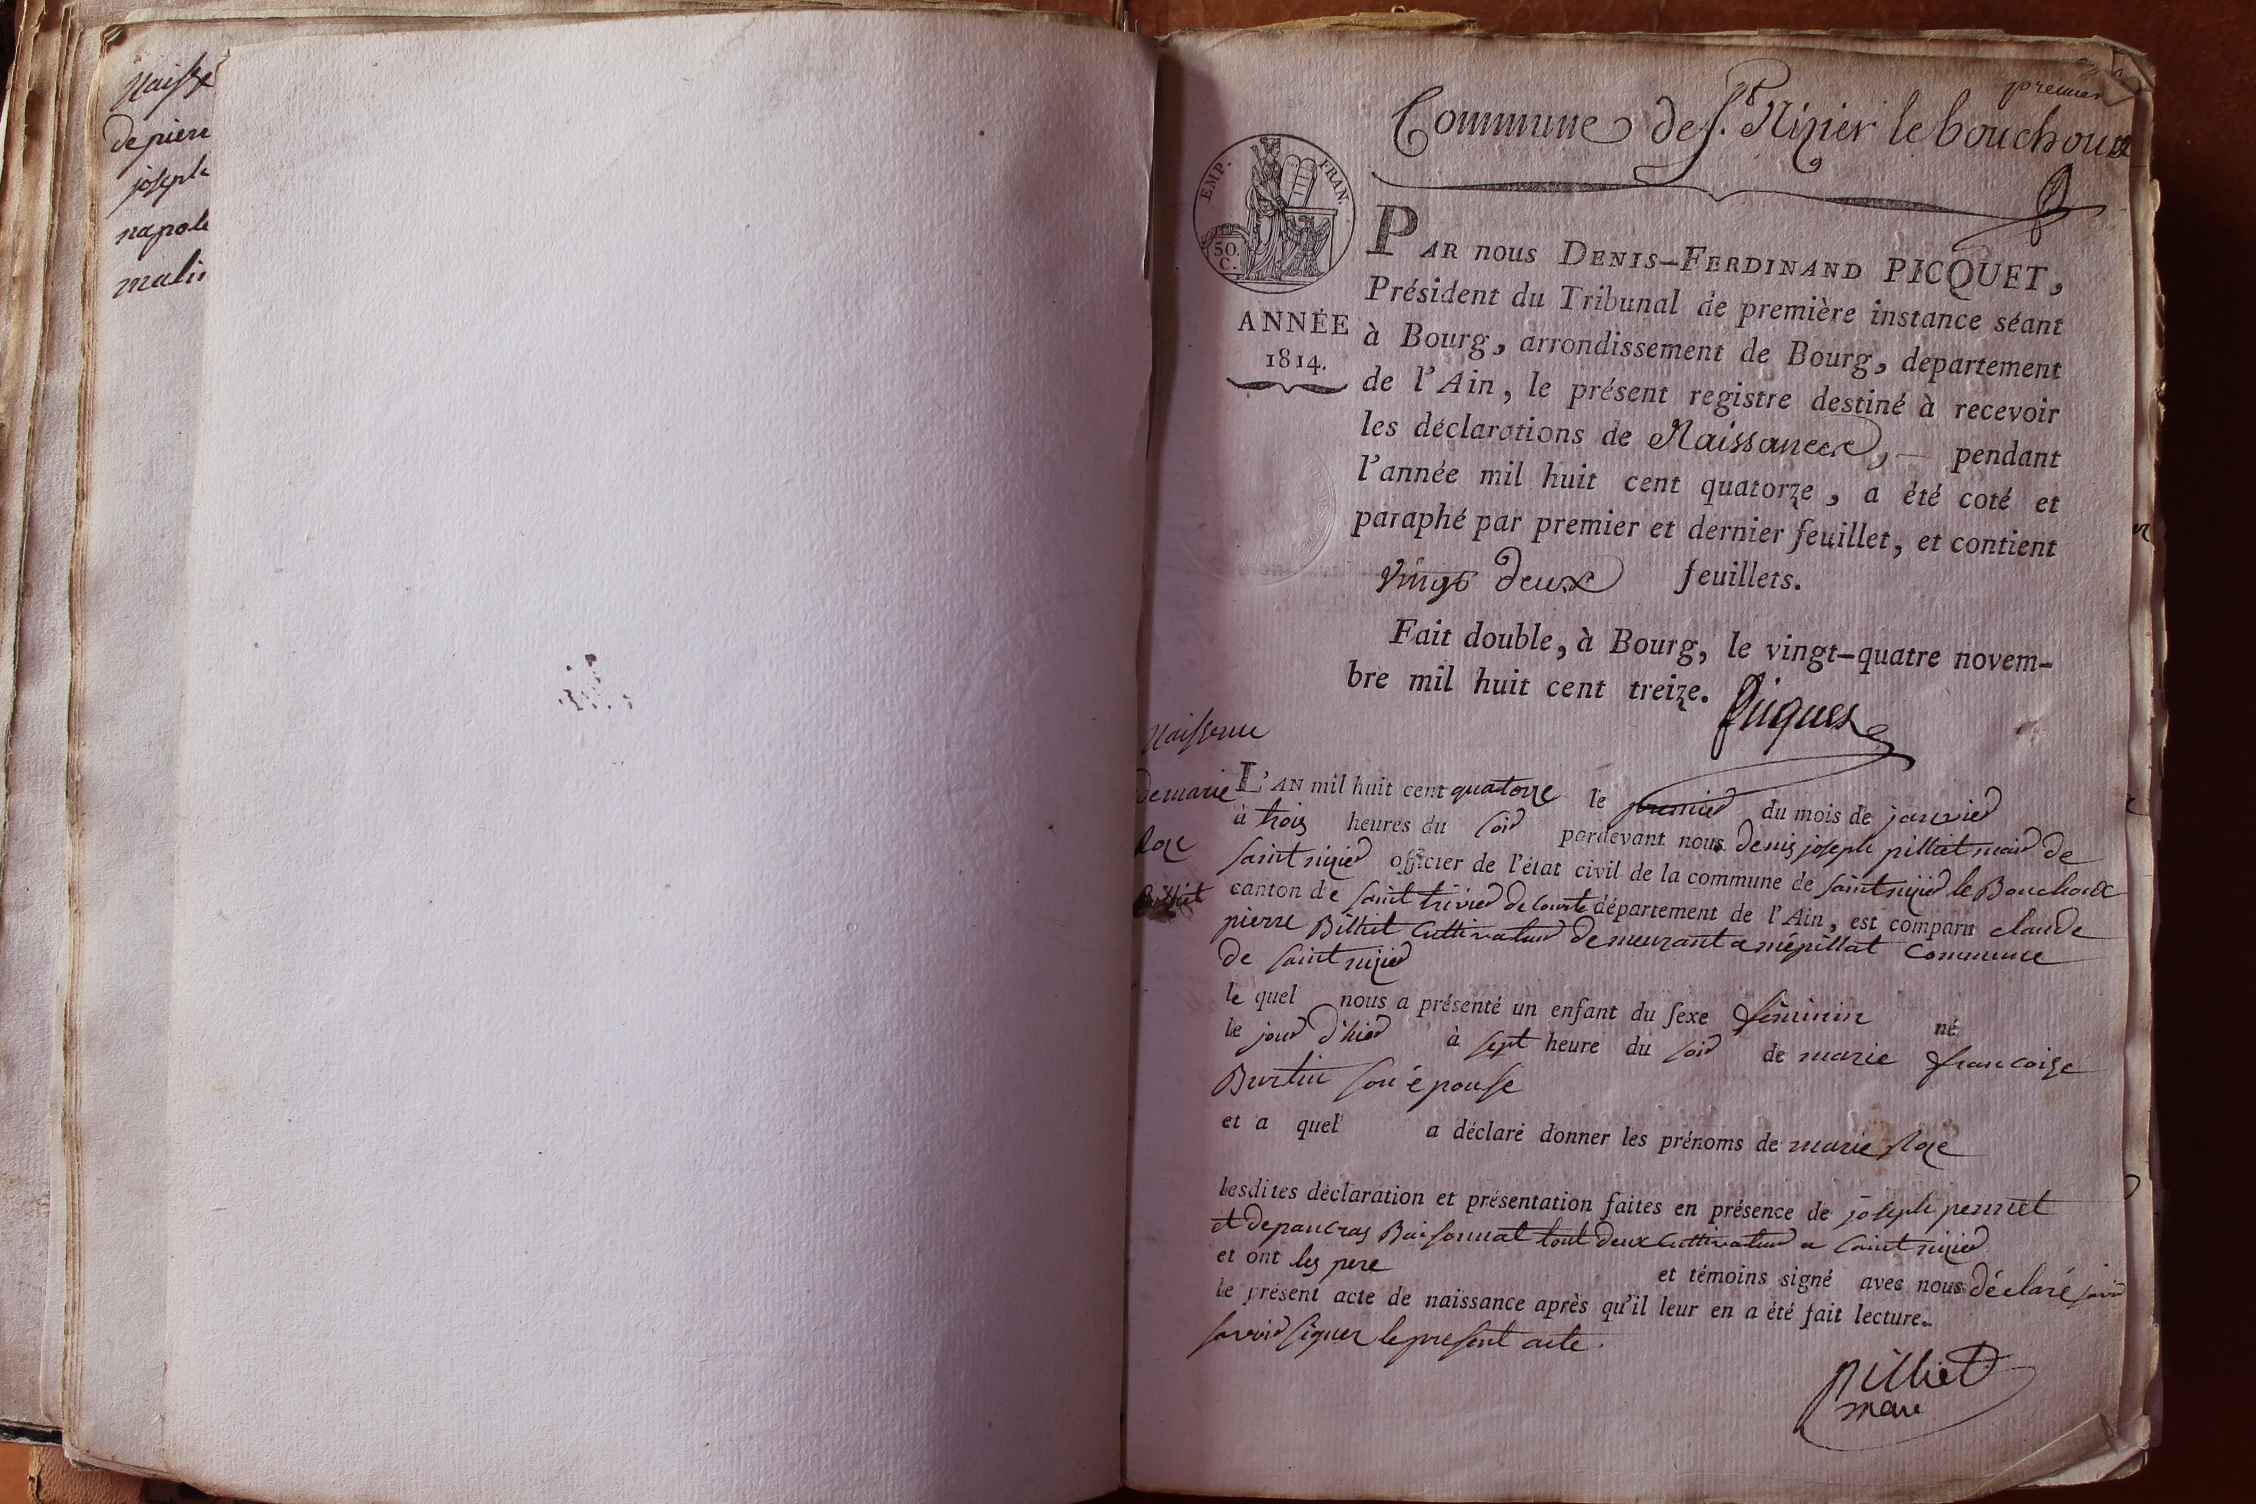 Naisse
de pierre
joseph
napole
malin
premier
Commune de St. Nizier le bouchoux
EMP. FRAN.
50. C.
ANNÉE
1814.
PAR nous DENIS-FERDINAND PICQUET,
Président du Tribunal de première instance séant
à Bourg, arrondissement de Bourg, departement
de l'Ain, le présent registre destiné à recevoir
les déclarations de Naissances, pendant
l'année mil huit cent quatorze, a été coté et
paraphé par premier et dernier feuillet, et contient
vingt deux feuillets.
Fait double, à Bourg, le vingt-quatre novem-
bre mil huit cent treize. Picquet
Naissence
de marie
Roze
Billiet
L'AN mil huit cent quatorze le premier du mois de janvier
à trois heures du soir pardevant nous denis joseph pilliet mair de
saint nizier officier de l'état civil de la commune de saint nizier le Bouchoux
canton de saint trivier de Courte département de l'Ain, est comparu claude
pierre Billiet Cultivateur demeurant a mépillat Commune
de saint nizier
le quel nous a présenté un enfant du sexe féminin né
le jour d'hier à sept heure du soir de marie francoise
Burtin son épouse
et a quel a déclaré donner les prénoms de marie Roze
lesdites déclaration et présentation faites en présence de joseph pennet
et de pancras Boisonnat tout deux Cultivateur a saint nizier
et ont les pere et témoins signé avec nous déclaré
le présent acte de naissance après qu'il leur en a été fait lecture.
savoir signer le present acte.
pilliet
mare